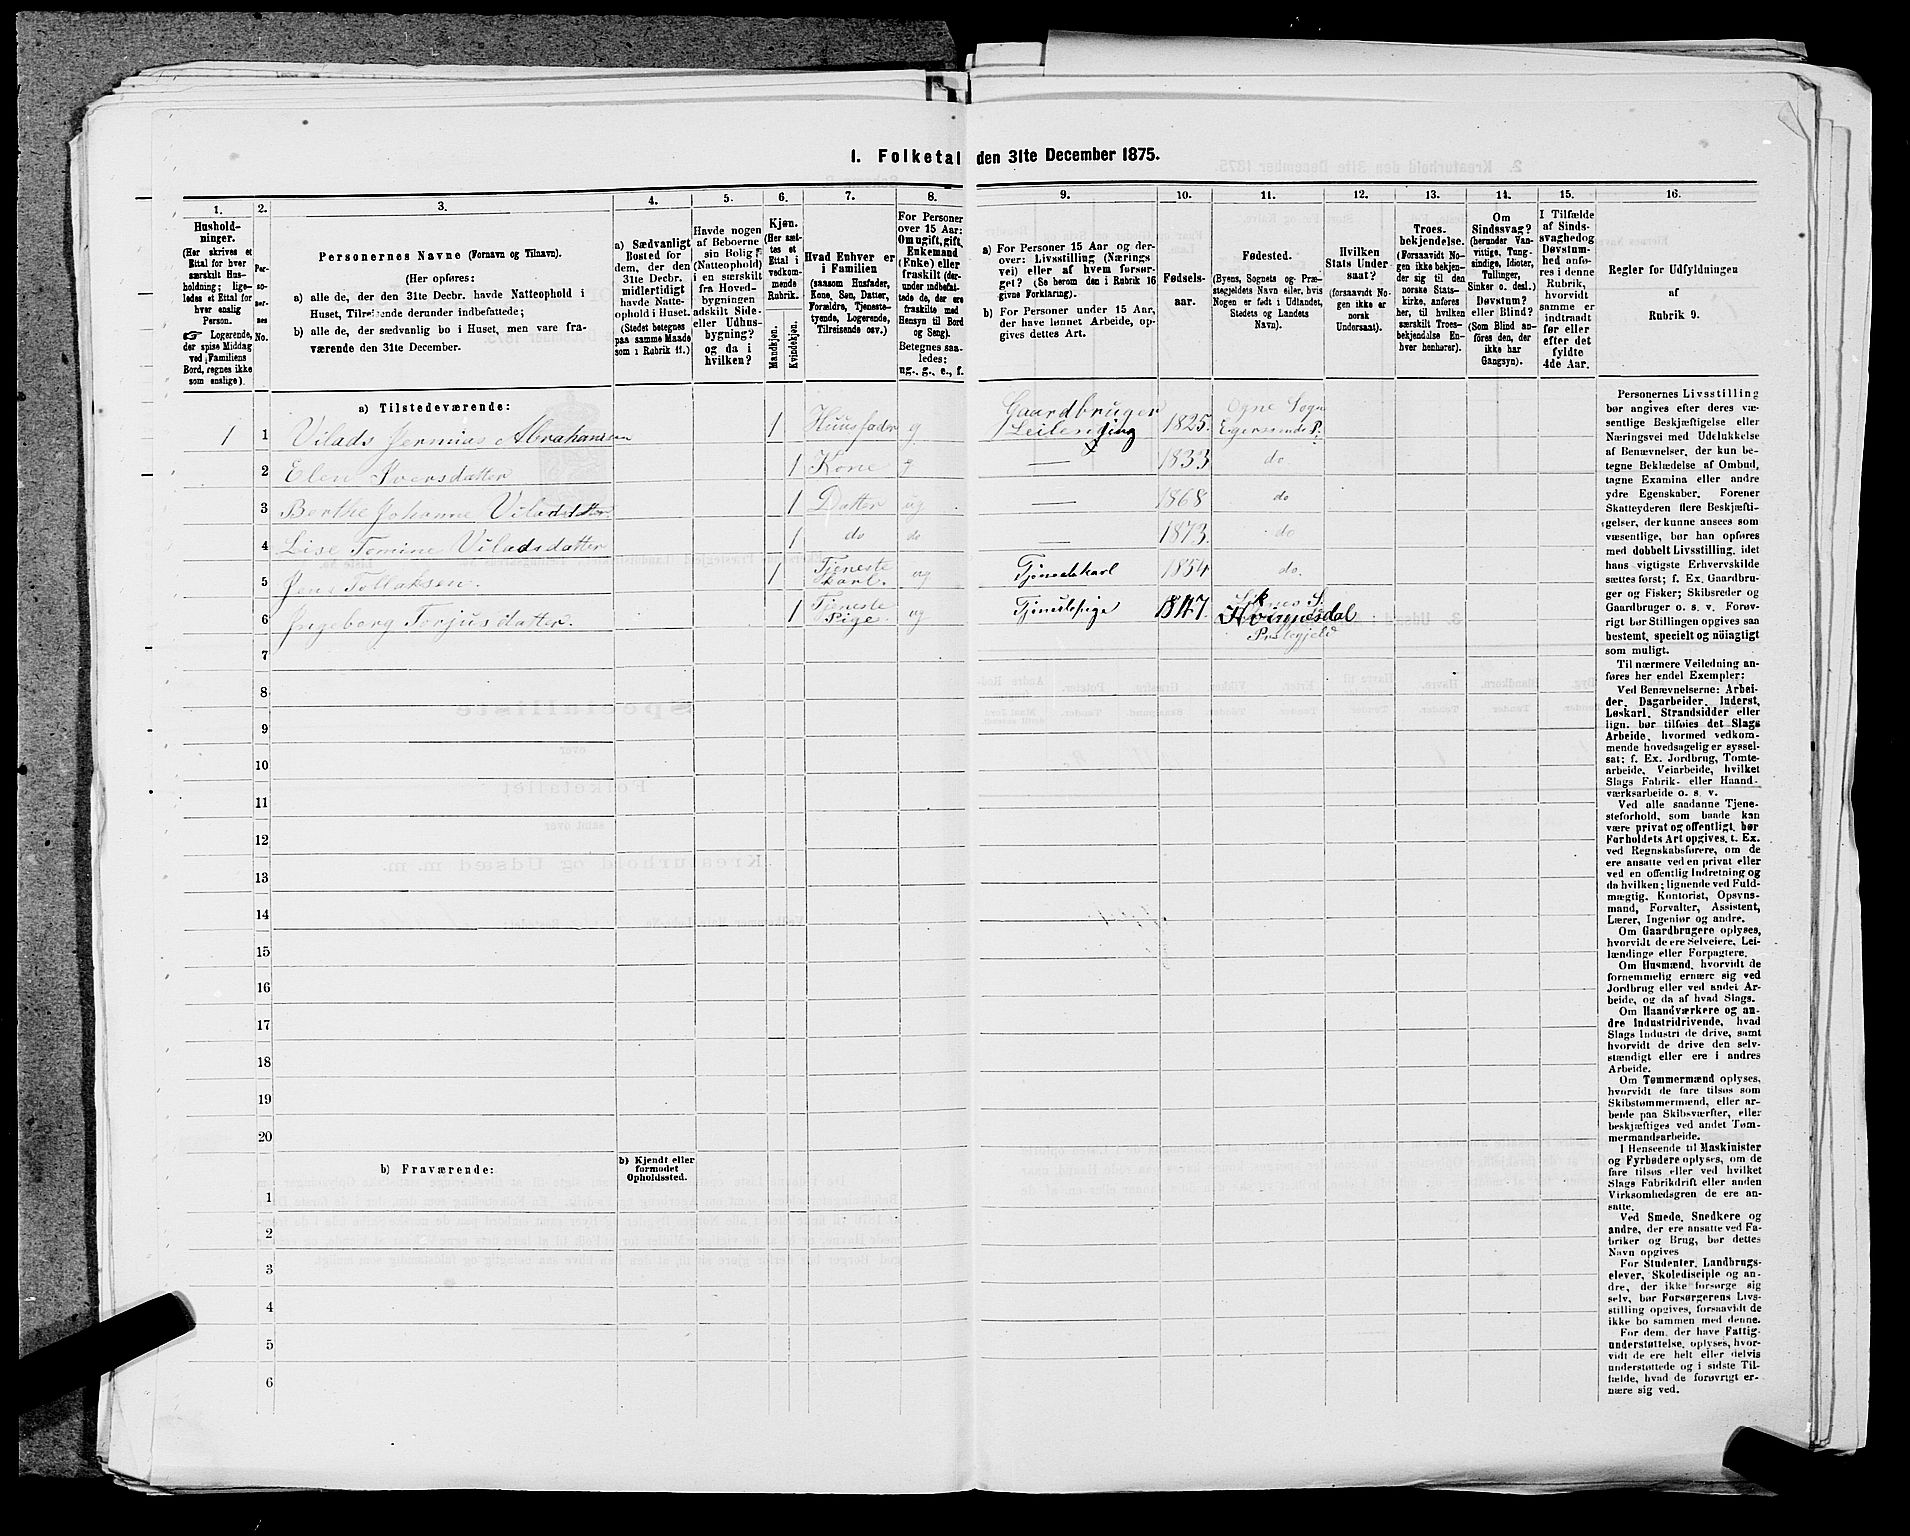 1. Folketal den 31te December 1875.
1. 2. 3. 4. 5. 6. 7. 8. 9. 10. 11. 12. 13. 14. 15. 16.
Hushold-
ninger.
(Her skrives et
Ettal for hver
særskilt Hus-
holdning; lige-
ledes et Ettal for
hver enslig
Person.
☞ Logerende,
der spise Middag
ved Familiens
Bord, regnes ikke
som enslige).
Per-
so-
ner-
nes
No.
Personernes Navne (Fornavn og Tilnavn).
(Her opføres:
a) alle de, der den 31te Decbr. havde Natteophold i
Huset, Tilreisende derunder indbefattede;
b) alle de, der sædvanlig bo i Huset, men vare fra-
værende den 31te December.
a) Sædvanligt
Bosted for
dem, der den
31te Decbr.
midlertidigt
havde Natte-
ophold i Huset.
(Stedet betegnes
paa samme Maade
som i Rubrik 11.)
Havde nogen
af Beboerne
sin Bolig
(Natteophold)
i en særskilt
fra Hoved-
bygningen
adskilt Side-
eller Udhus-
bygning?
og da i
hvilken?
Kjøn.
(Her sæt-
tes et
Ettal i
vedkom-
mende
Rubrik.)
Mandkjøn.
Kvindekjøn.
Hvad Enhver er
i Familien
(saasom Husfader,
Kone, Søn, Datter,
Forældre, Tjeneste-
tyende, Logerende,
Tilreisende osv.)
For Personer
over 15 Aar:
Om ugift, gift,
Enkemand
(Enke) eller
fraskilt (der-
under indbefat-
tede de, der ere
fraskilte med
Hensyn til Bord
og Seng).
Betegnes saa-
ledes:
ug., g., e., f.
a) For Personer 15 Aar og der-
over: Livsstilling (Nærings-
vei) eller af hvem forsør-
get? (Se herom den i Rubrik 16
givne Forklaring).
b) For Personer under 15 Aar,
der have lønnet Arbeide, op-
gives dettes Art.
Fødsels-
aar.
Fødested.
(Byens, Sognets og Præ-
stegjeldets Navn eller, hvis
Nogen er født i Udlandet,
Stedets og Landets
Navn).
Hvilken
Stats Under
saat?
(forsaavidt No-
gen ikke er
norsk
Undersaat).
Troes-
bekjendelse.
(Forsaavidt No-
gen ikke bekjen-
der sig til den
norske Stats-
kirke, anføres
her, til hvilken
særskilt Troes-
bekjendelse En-
hver henhører).
Om
Sindssvag?
(herunder Van-
vittige, Tung-
sindige, Idioter,
Tullinger,
Sinker o. desl.)
Døvstum?
eller Blind?
(Som Blind an-
føres den, der
ikke har
Gangsyn).
I Tilfælde
af Sinds-
svaghed og
Døvstum-
hed anfø-
res i denne
Rubrik,
hvorvidt
samme er
indtraadt
før eller
efter det
fyldte
4de Aar.
Regler for Udfyldningen
af
Rubrik 9.
a) Tilstedeværende:
1 1 Vilads Jermias Abrahamsen 1 Huusfader g Gaardbruger Leilending 1825. Ogne Sogn Egersunds P:
2 Elen Iversdatter 1 Kone g — 1833 do
3 Berthe Johanne Viladsdtter 1 Datter ug — 1868 do
4 Lise Tomine Viladsdatter 1 do do — 1873. do
5 Jens Tollaksen. 1 Tjeneste karl. ug Tjenestekarl 1854 do.
6 Ingeborg Torjusdatter. 1 Tjeneste Pige. ug Tjenestepige 1847. Kvinnesdal Præstegjeld
7
8
9
10
11
12
13
14
15
16
17
18
19
20
b) Fraværende:
b) Kjendt eller
formodet
Opholdssted.
1
2
3
4
5
6
Personernes Livsstilling
bør angives efter deres væ-
sentlige Beskjæftigelse eller
Næringsvei med Udelukkelse
af Benævnelser, der kun be-
tegne Beklædelse af Ombud,
tagne Examina eller andre
ydre Egenskaber. Forener
Skatteyderen flere Beskjæfti-
gelser, der kunne ansees som
væsentlige, bør han opføres
med dobbelt Livsstilling, idet
hans vigtigste Erhvervskilde
sættes først; f. Ex. Gaardbru-
ger og Fisker; Skibsreder og
Gaardbruger o. s. v. Forøv-
rigt bør Stillingen opgives saa
bestemt, specielt og nøiagtigt
som muligt.
Til nærmere Veiledning an-
føres her endel Exempler:
Ved Benævnelserne: Arbei-
der, Dagarbeider, Inderst,
Løskarl, Strandsidder eller
lign. bør tilføies det Slags
Arbeide, hvormed vedkom-
mende hovedsagelig er syssel-
sat; f. Ex. Jordbrug, Tomte-
arbeide, Veiarbeide, hvilket
Slags Fabrik- eller Haand-
værksarbeide o. s. v.
Ved alle saadanne Tjene-
steforhold, som baade kan
være privat og offentligt, bør
Forholdets Art opgives, t. Ex.
ved Regnskabsførere, om de
ere ansatte ved en privat eller
ved en offentlig Indretning og
da hvilken; lignende ved Fuld-
mægtig, Kontorist, Opsyns-
mand, Forvalter, Assistent,
Lærer, Ingeniør og andre.
Om Gaardbrugere oplyses,
hvorvidt de ere Selveiere, Lei-
lændinge eller Forpagtere.
Om Husmænd, hvorvidt de
fornemmelig ernære sig ved
Jordbrug eller ved andet Ar-
beide, og da af hvad Slags.
Om Haandværkere og an-
dre Industridrivende, hvad
Slags Industri de drive, samt
hvorvidt de drive den selv-
stændigt eller ere i andres
Arbeide.
Om Tømmermænd oplyses,
hvorvidt de fare tilsøs som
Skibstømmermænd, eller ar-
beide paa Skibsværfter, eller
beskjæftiges ved andet Tøm-
mermandsarbeide.
I Henseende til Maskinister
og Fyrbødere oplyses, om de
fare tilsøs eller ved hvilket
Slags Fabrikdrift eller anden
Virksomhedsgren de ere an-
satte.
Ved Smede, Snedkere og
andre, der ere ansatte ved Fa-
briker og Brug, bør dettes
Navn opgives
For Studenter, Landbrugs-
elever, Skoledisciple og an-
dre, der ikke forsørge sig
selv, bør Forsørgerens Livs-
stilling opgives, forsaavidt de
ikke bo sammen med denne.
For dem, der have Fattig-
understøttelse, oplyses, hvor-
vidt de ere helt eller delvis
understøttede og i sidste Til-
fælde, hvad de forøvrigt er-
nære sig ved.